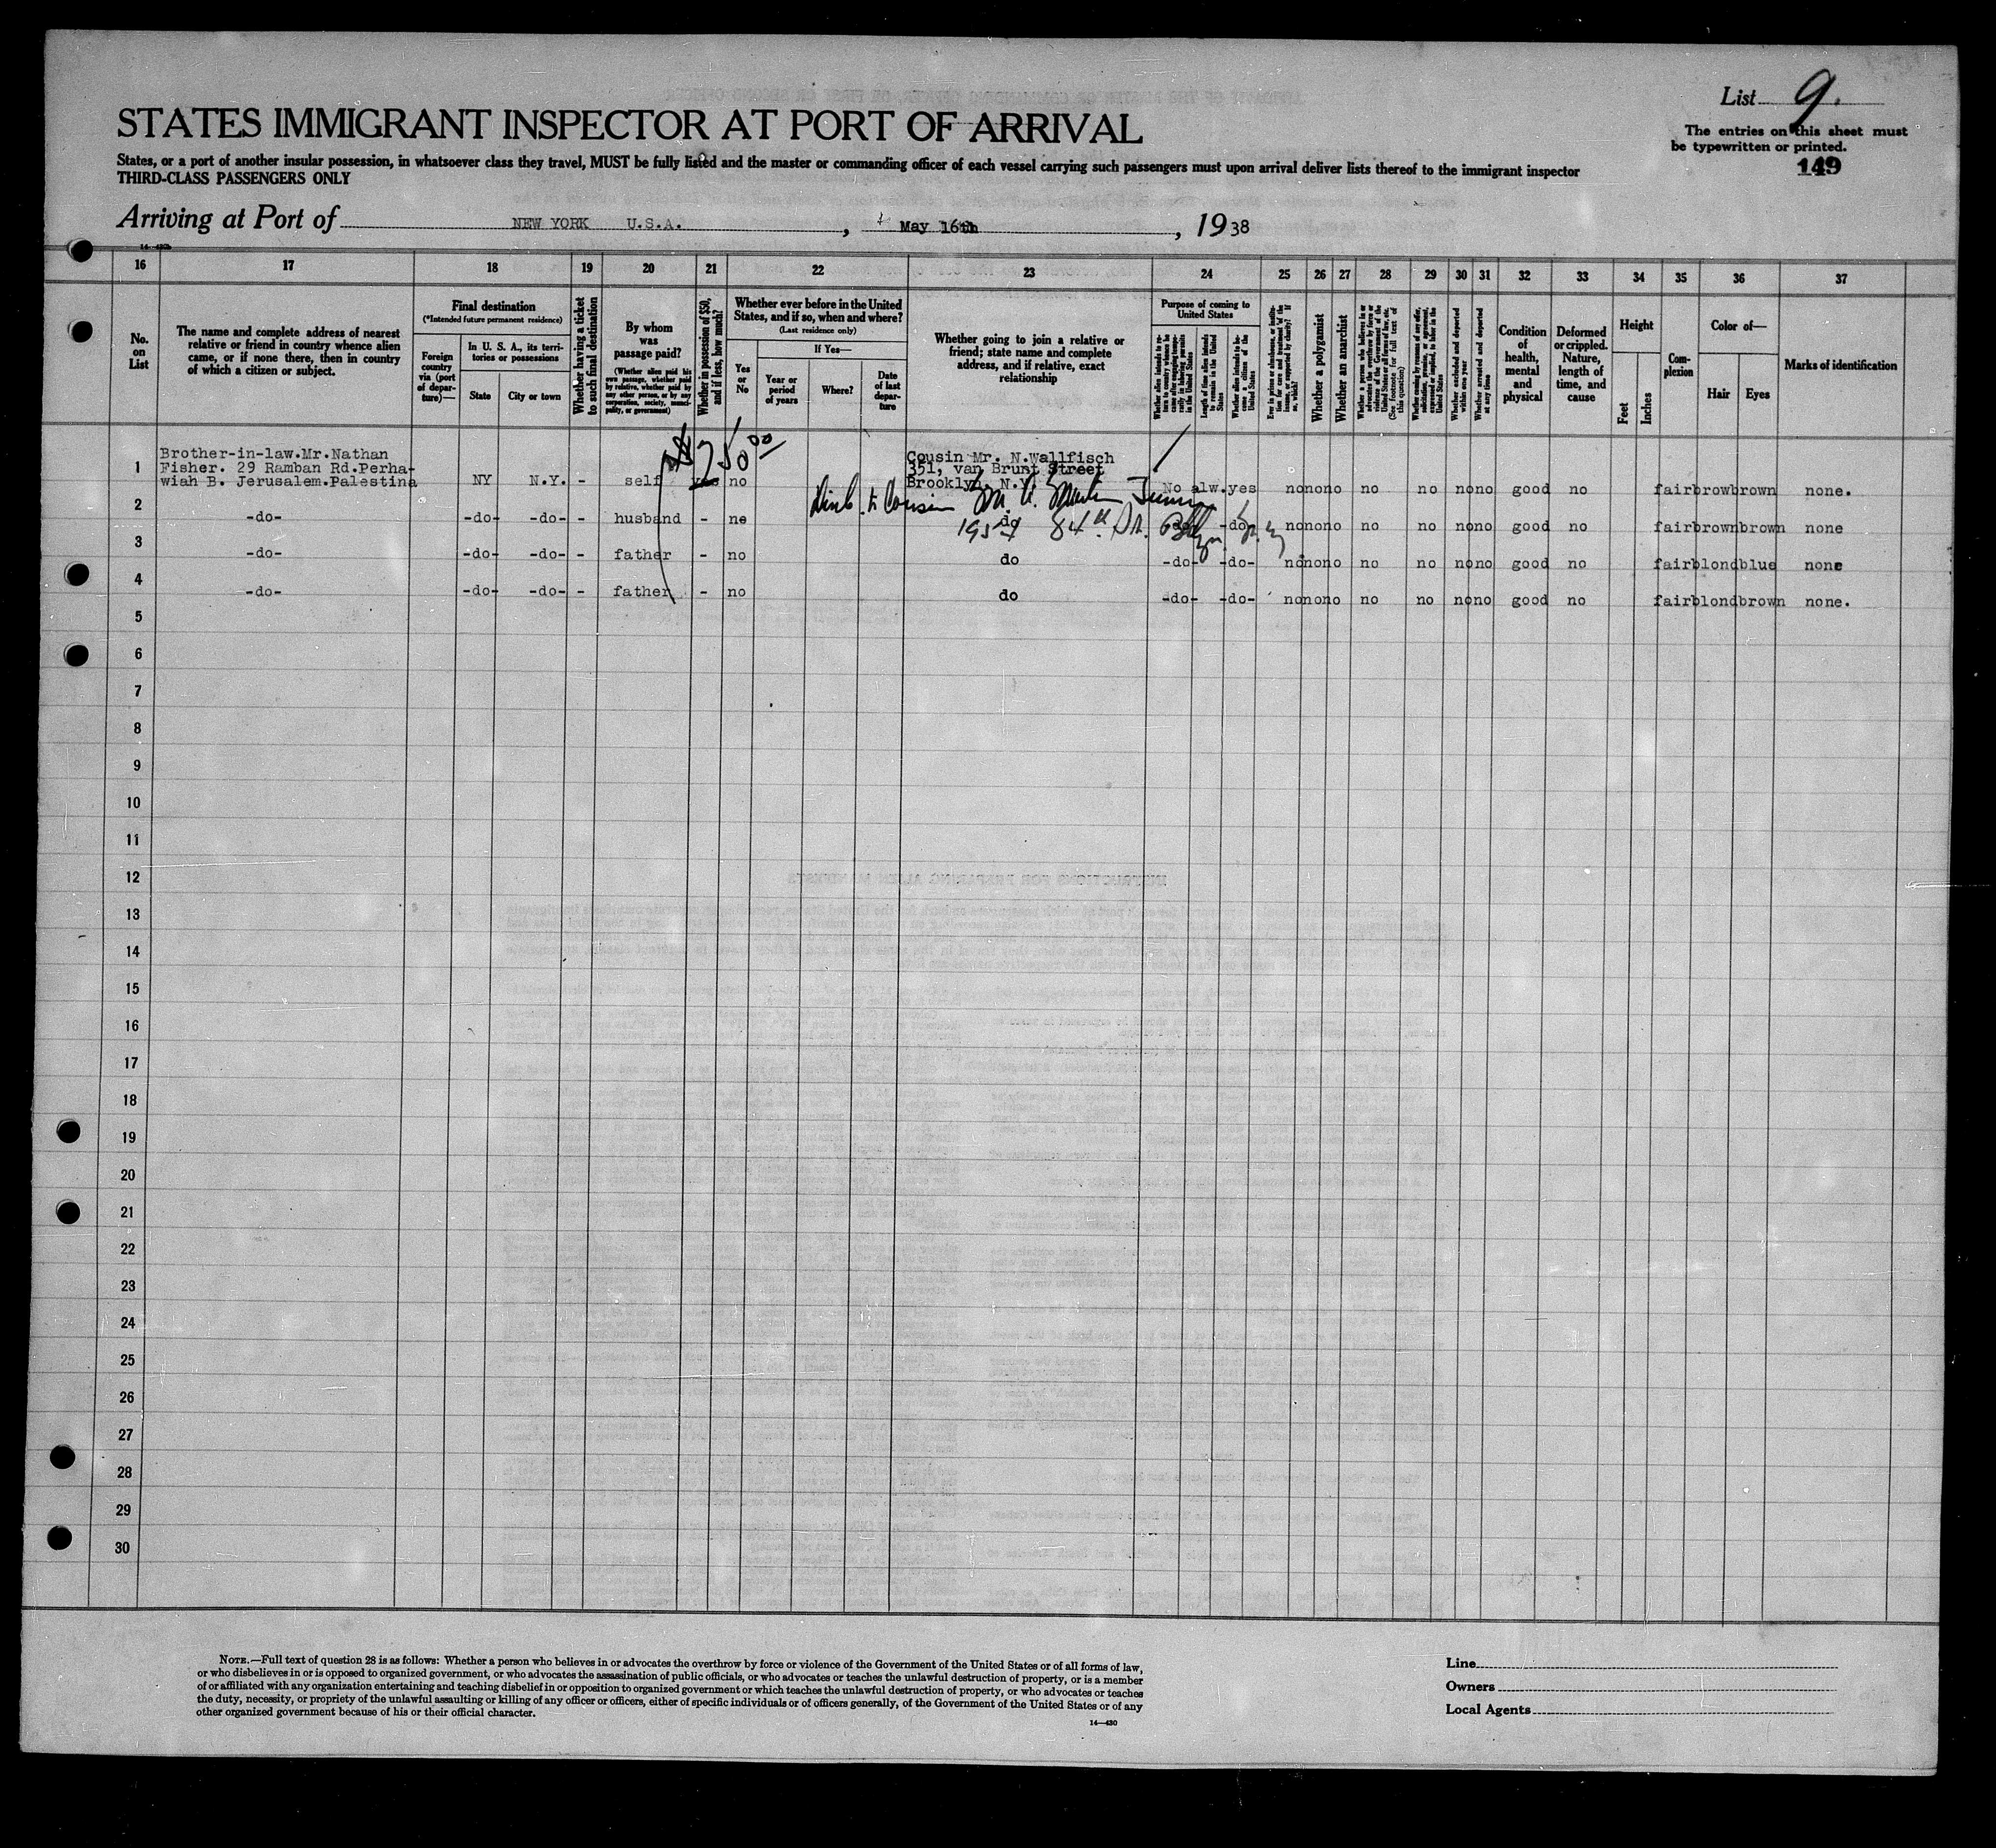 List 9.
STATES IMMIGRANT INSPECTOR AT PORT OF ARRIVAL
The entries on this sheet must
be typewritten or printed.
149
States, or a port of another insular possession, in whatsoever class they travel, MUST be fully listed and the master or commanding officer of each vessel carrying such passengers must upon arrival deliver lists thereof to the immigrant inspector
THIRD-CLASS PASSENGERS ONLY
Arriving at Port of NEW YORK U.S.A. , May 16th , 1938
16 17 18 19 20 21 22 23 24 25 26 27 28 29 30 31 32 33 34 35 36 37
No.
on
List
The name and complete address of nearest
relative or friend in country whence alien
came, or if none there, then in country
of which a citizen or subject.
Final destination
(*Intended future permanent residence)
Foreign
country
via (port
of depar-
ture)—
In U. S. A., its terri-
tories or possessions
State
City or town
Whether having a ticket
to such final destination
By whom
was
passage paid?
(Whether alien paid his
own passage, whether paid
by relative, whether paid by
any other person, or by any
corporation, society, munici-
pality, or government)
Whether in possession of $50,
and if less, how much?
Whether ever before in the United
States, and if so, when and where?
(Last residence only)
Yes
or
No
If Yes—
Year or
period
of years
Where?
Date
of last
depar-
ture
Whether going to join a relative or
friend; state name and complete
address, and if relative, exact
relationship
Purpose of coming to
United States
Length of time alien intends
to remain in the United
States
Whether alien intends to be-
come a citizen of the
United States
Whether a polygamist
Whether an anarchist
(See footnote for full text of
this question)
Whether excluded and deported
within one year
Whether arrested and deported
at any time
Condition
of
health,
mental
and
physical
Deformed
or crippled.
Nature,
length of
time, and
cause
Height
Feet
Inches
Com-
plexion
Color of—
Hair
Eyes
Marks of identification
$250 00
1 Brother-in-law.Mr.Nathan
Fisher. 29 Ramban Rd.Perha-
wiah B. Jerusalem.Palestina NY N.Y. - self yes no
Cousin Mr. N.Wallfisch
351, van Brunt Street
Brooklyn. N.Y. No alw.yes no no no no no no no good no fair brow brown none.
Cousin Mr.
2 -do- -do- -do- - husband - no do -do- -do- no no no no no no no good no fair brown brown none
84th St.
3 -do- -do- -do- - father - no do -do- -do- no no no no no no no good no fair blond blue none
4 -do- -do- -do- - father - no do -do- -do- no no no no no no no good no fair blond brown none.
5
6
7
8
9
10
11
12
13
14
15
16
17
18
19
20
21
22
23
24
25
26
27
28
29
30
NOTE.—Full text of question 28 is as follows: Whether a person who believes in or advocates the overthrow by force or violence of the Government of the United States or of all forms of law,
or who disbelieves in or is opposed to organized government, or who advocates the assassination of public officials, or who advocates or teaches the unlawful destruction of property, or is a member
of or affiliated with any organization entertaining and teaching disbelief in or opposition to organized government or which teaches the unlawful destruction of property, or who advocates or teaches
the duty, necessity, or propriety of the unlawful assaulting or killing of any officer or officers, either of specific individuals or of officers generally, of the Government of the United States or of any
other organized government because of his or their official character.
14—430
Line
Owners
Local Agents